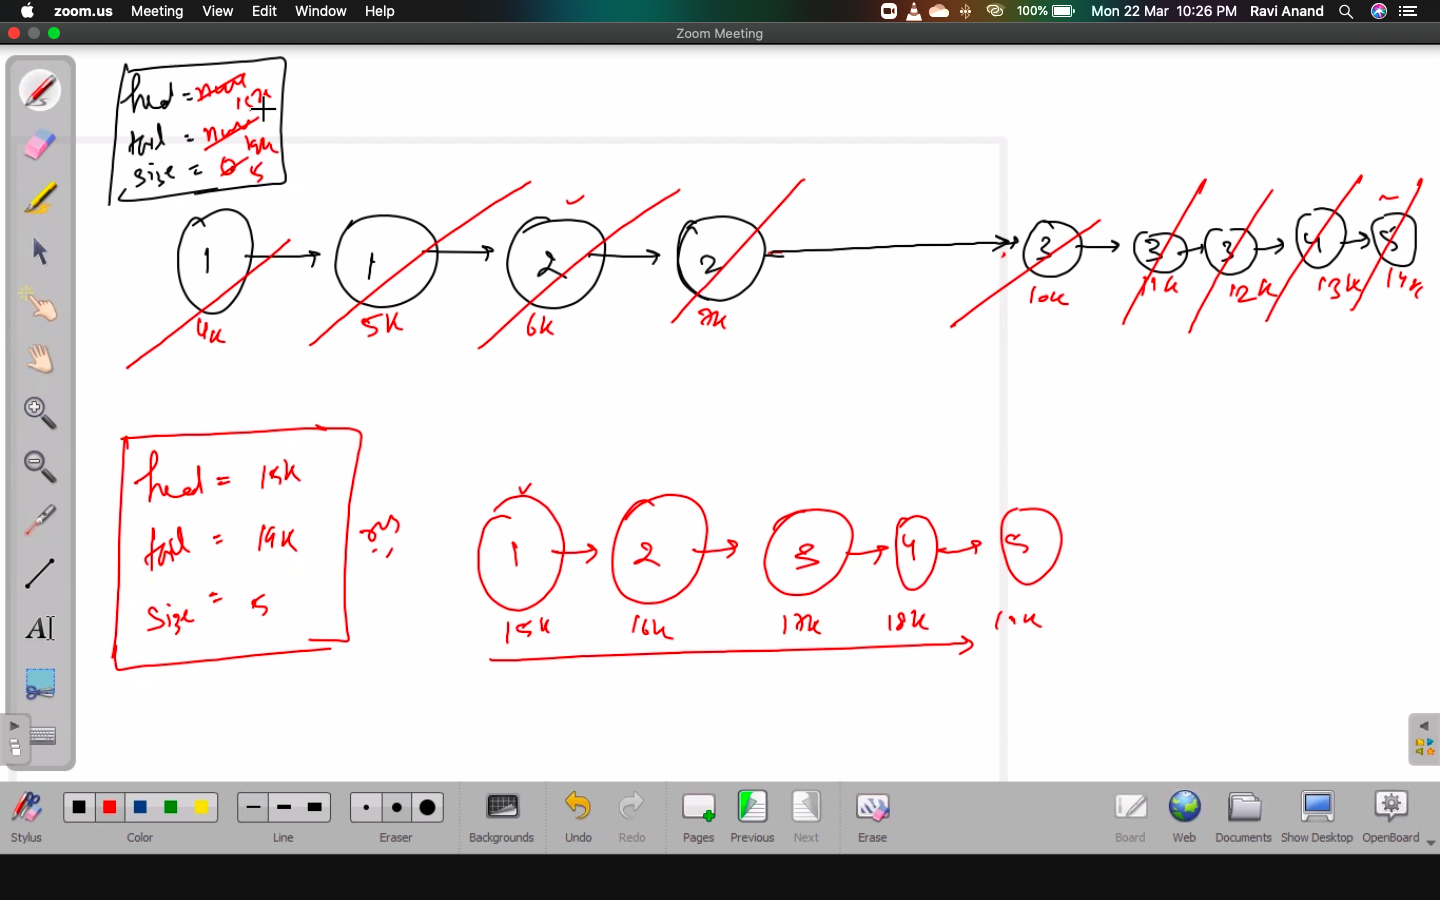 zoom.us Meeting View Edit Window Help 100% Mon 22 Mar 10:26 PM Ravi Anand
Zoom Meeting
head = null 15k
tail = null 19k
size = 0 5
1 1 2 2 3 3 3 4 5
4k 5k 6k 7k 10k 11k 12k 13k 14k
head = 15k
tail = 19k
res
size = 5
1 2 3 4 5
15k 16k 17k 18k 19k
AI
Stylus Color Line Eraser Backgrounds Undo Redo Pages Previous Next Erase Board Web Documents Show Desktop OpenBoard